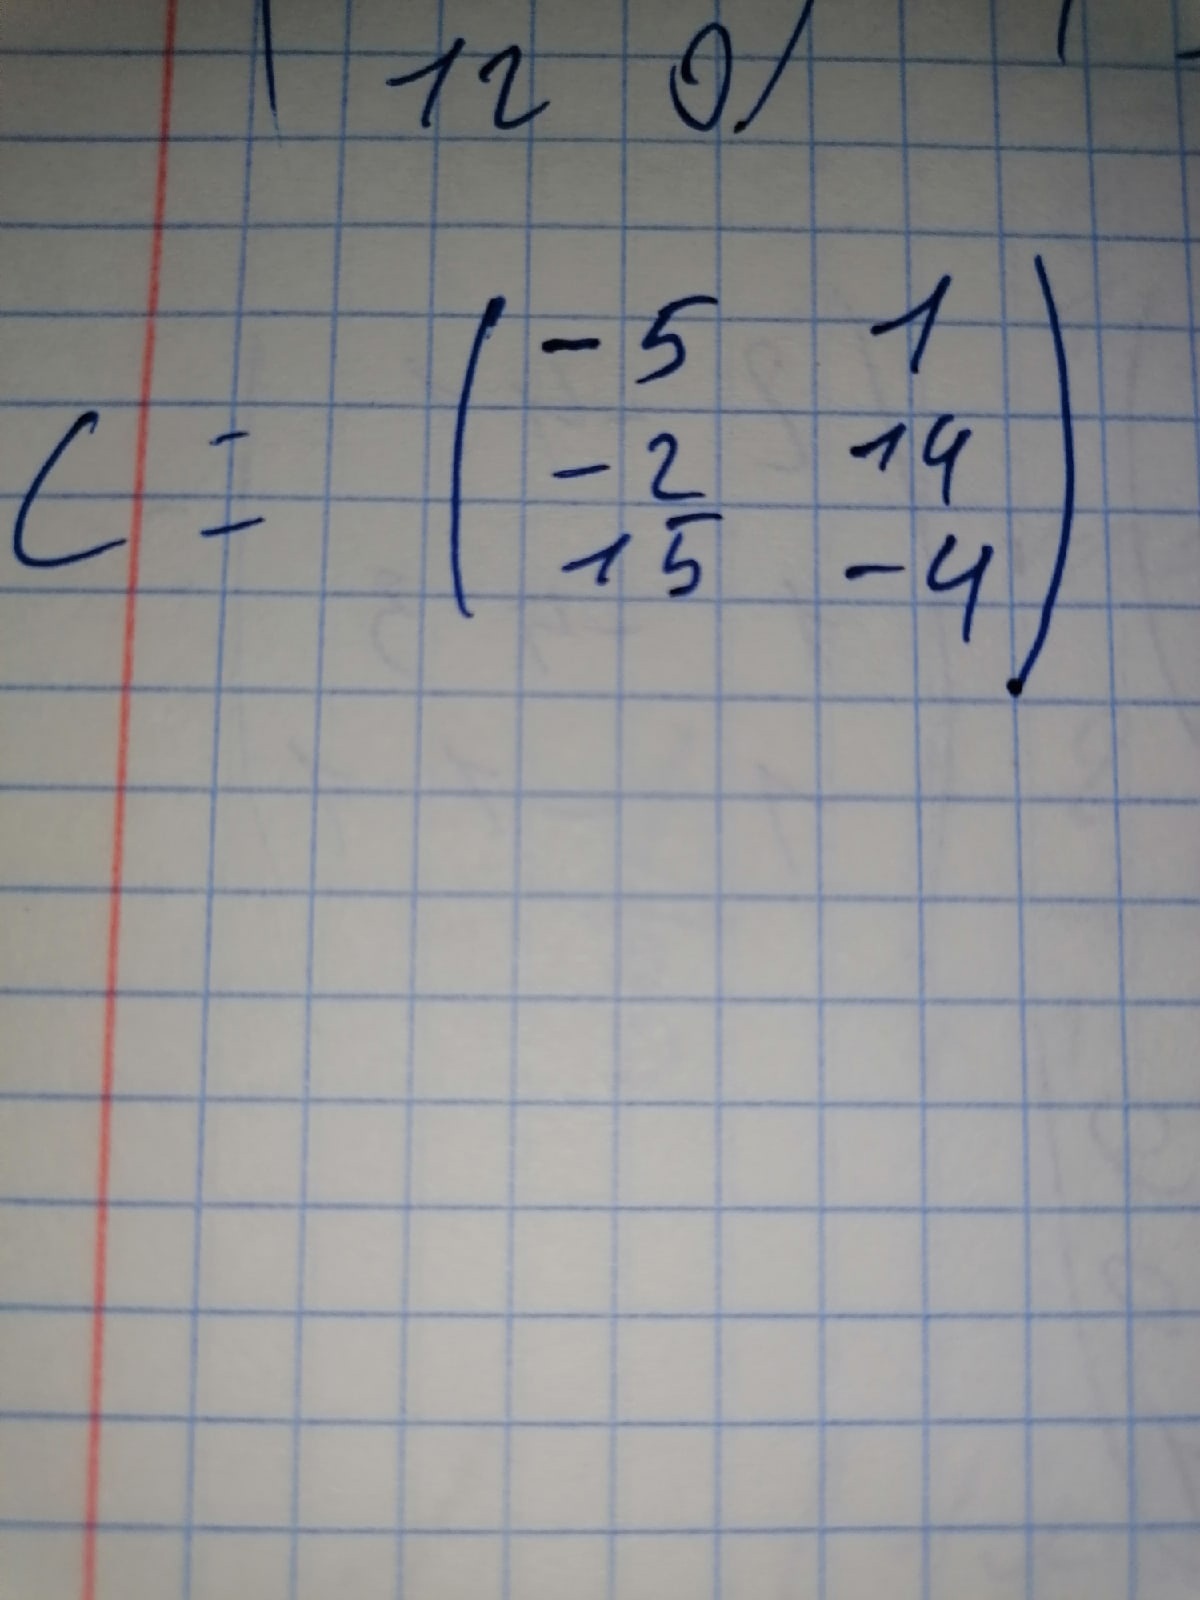 12 0
-5 1
C = -2 14
15 -4